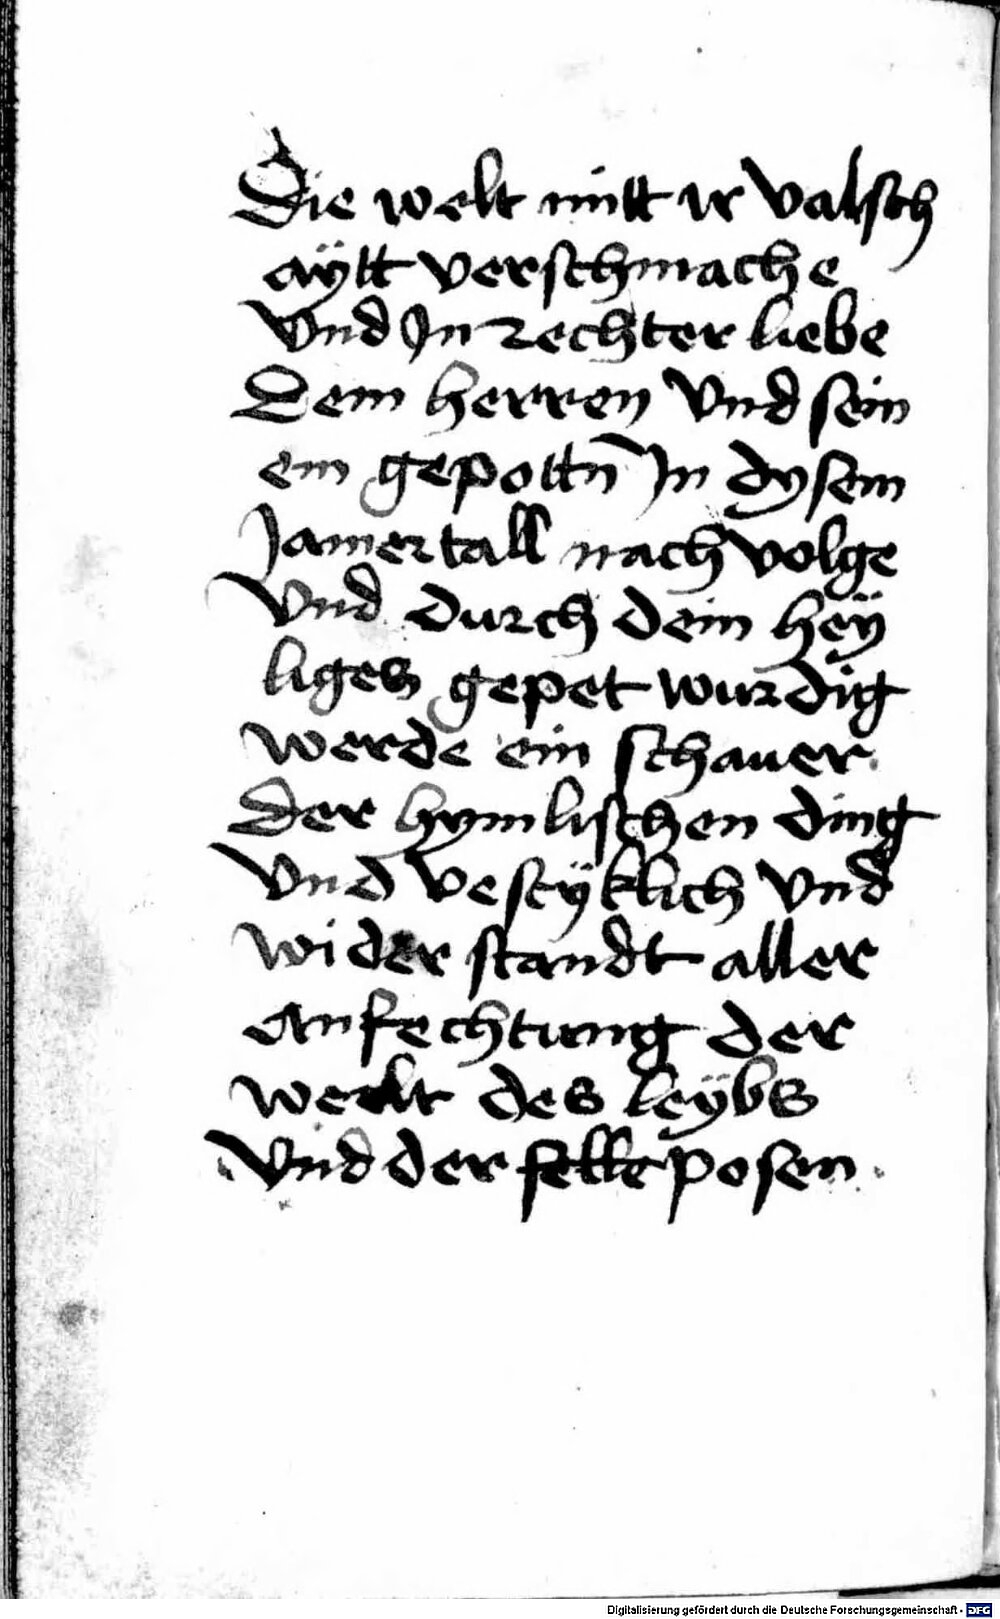 Die welt mitt ir valsch
aÿtt verschmache
vnd Jn rechter liebe
Dem herren vnd sein
em gepottn̄ Jn dysem
Jamertall nach volge
vnd durch dein heÿ
liges gepet wurdig
werde ein schauer
der hymlischen ding
vnd vestÿklich vnd
wider standt aller
anfechtung der
welt des leÿbs
vnd der felle posen
Digitalisierung gefördert durch die Deutsche Forschungsgemeinschaft - DFG